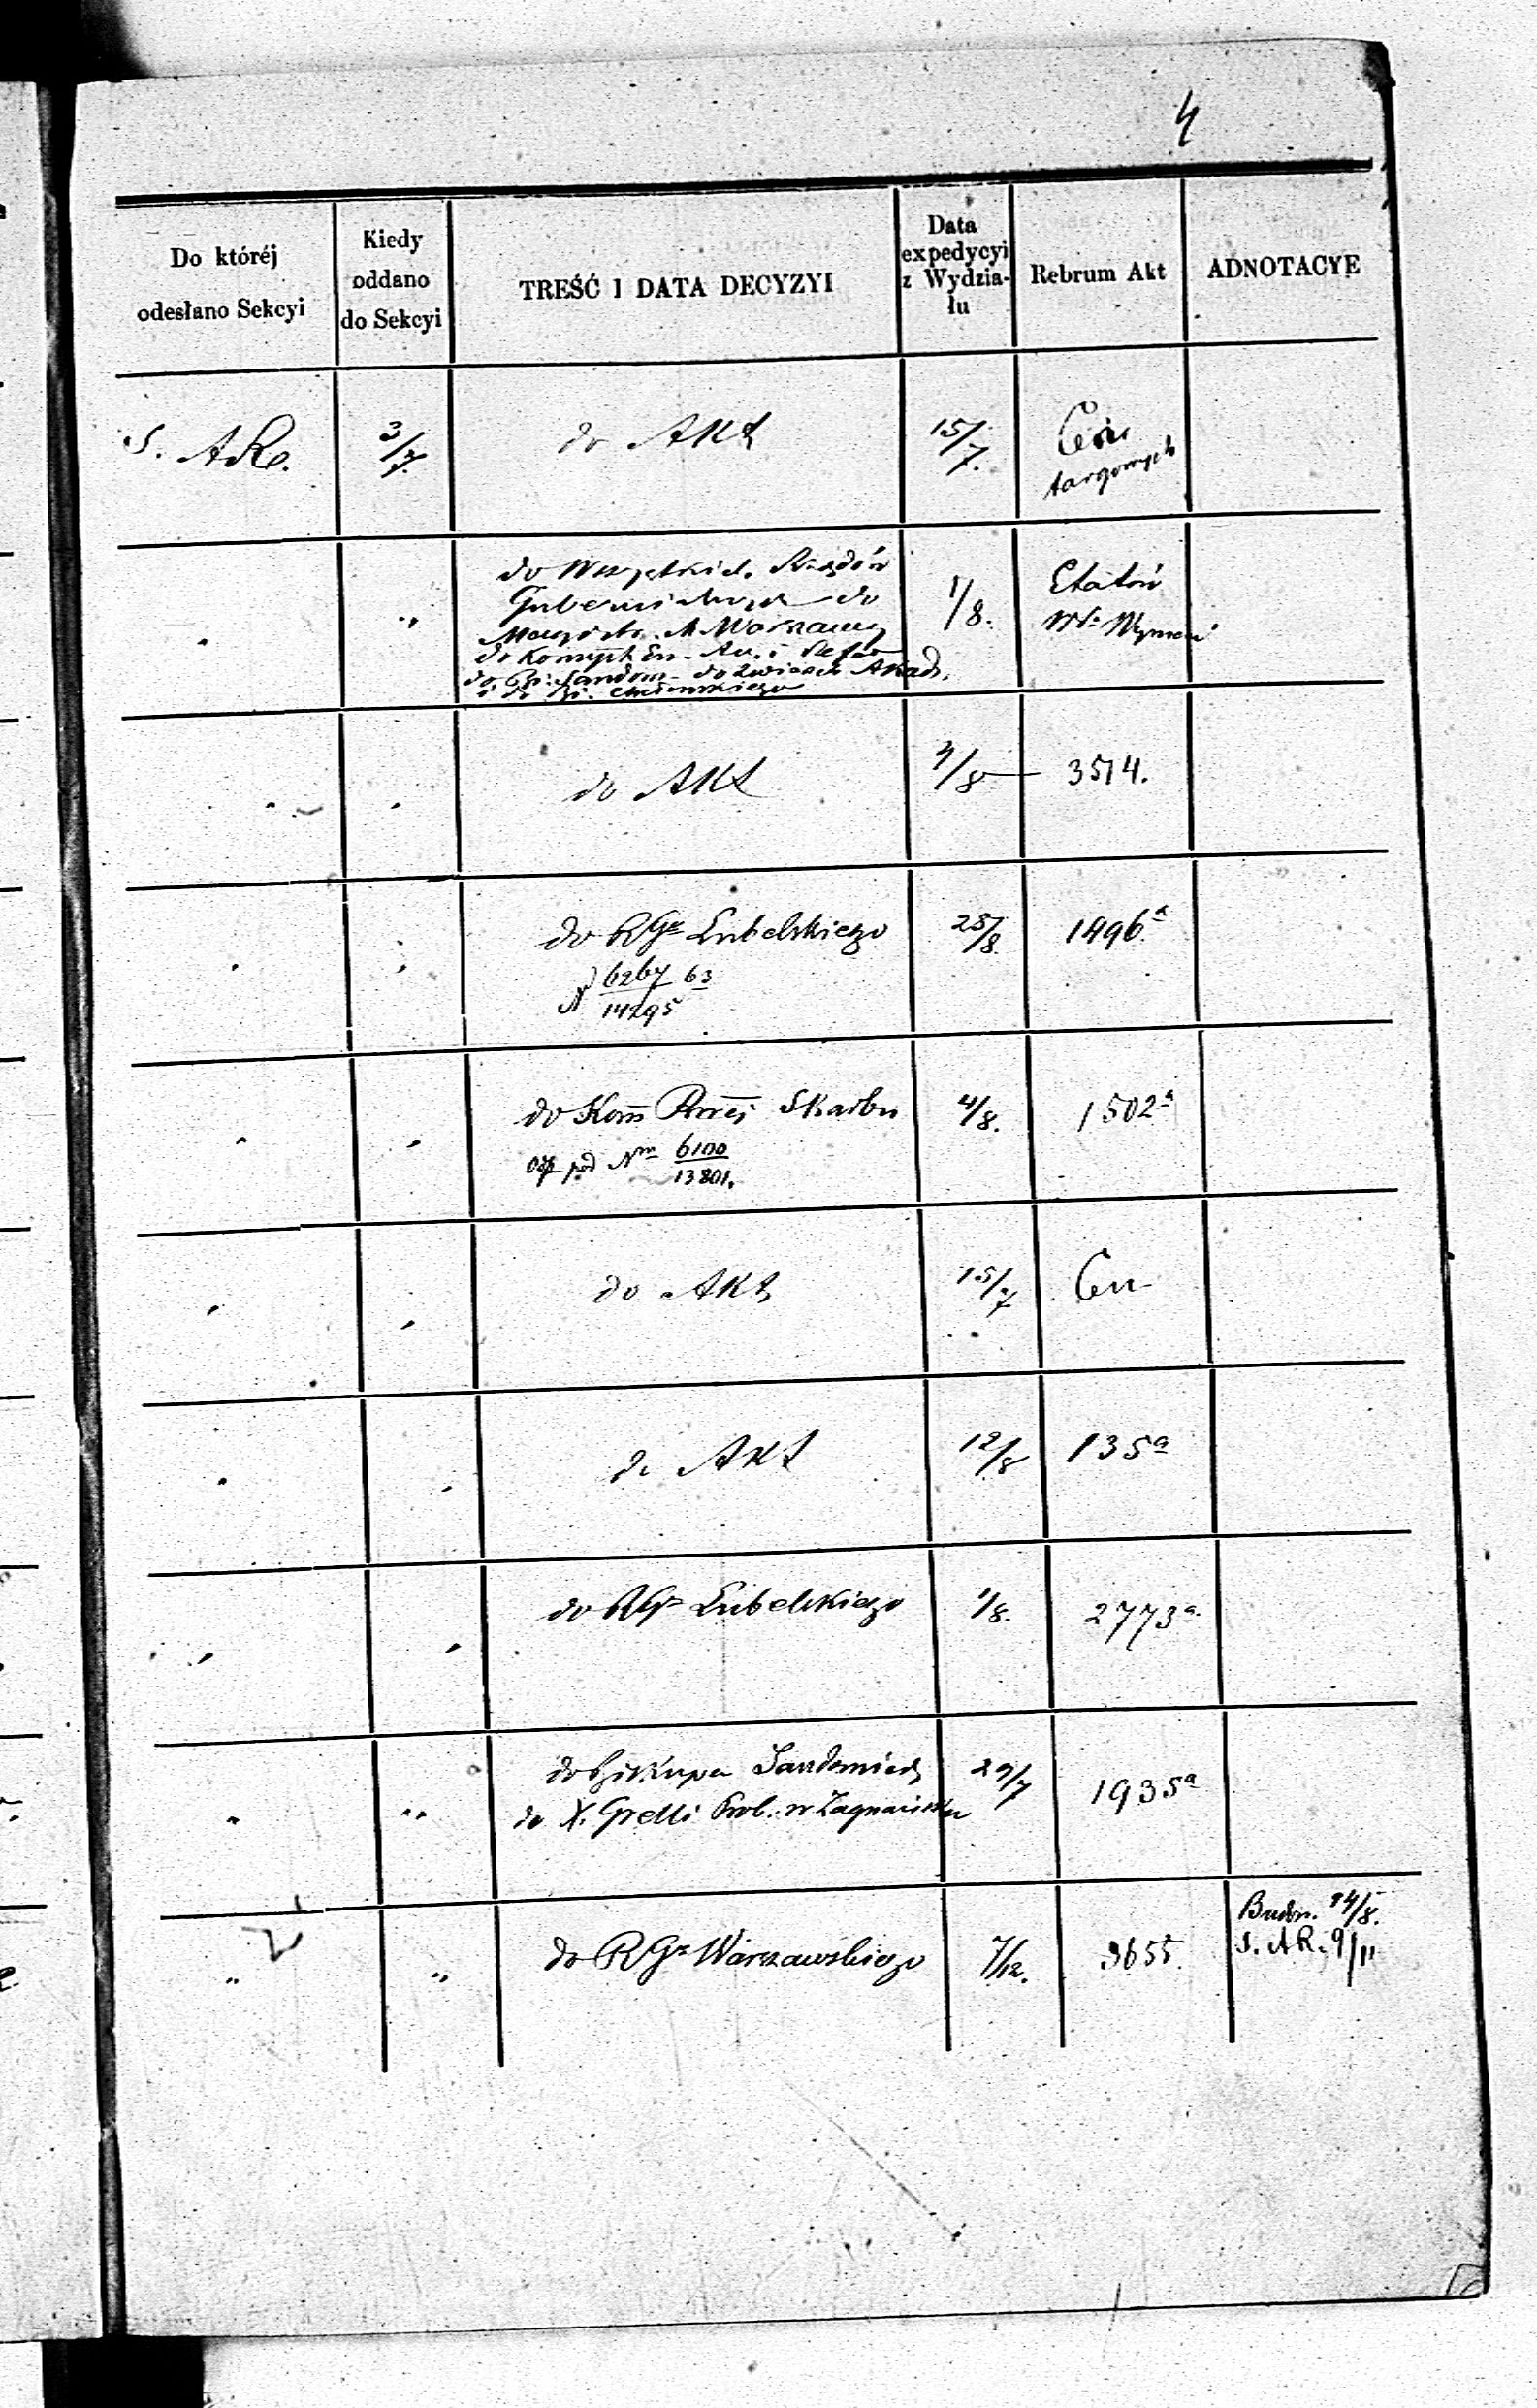 4
Do któréj
odesłano Sekcyi
Kiedy
oddano
do Sekcyi
TREŚĆ I DATA DECYZYI
Data
expedycyi
z Wydzia-
łu
Rebrum Akt
ADNOTACYE
S. AR.
3/7.
do Akt
15/7.
Cen
targowych
do Wszystkich Rządów
Gubernialnych do
M. Warszawy
do
do Sandom. do Akad.
i do
"
1/8.
Etatów
do Akt
3514.
do RGo Lubelskiego
N 6267 63
14295
25/8.
1496a
do Kom Rząej Skarbu
Odp pod Nrm 6100
13801.
4/8.
1502a
do Akt
15/7
Cen
do Akt
12/8
135a
do RGo Lubelskiego
1/8.
2773a
" do Biskupa Sandomier
do X. Gretti Prob. w Zagnańsku
29/7
1935a
" " do RGo Warszawskiego
7/12.
3655.
Budn. 14/8.
S. AR. 9/11